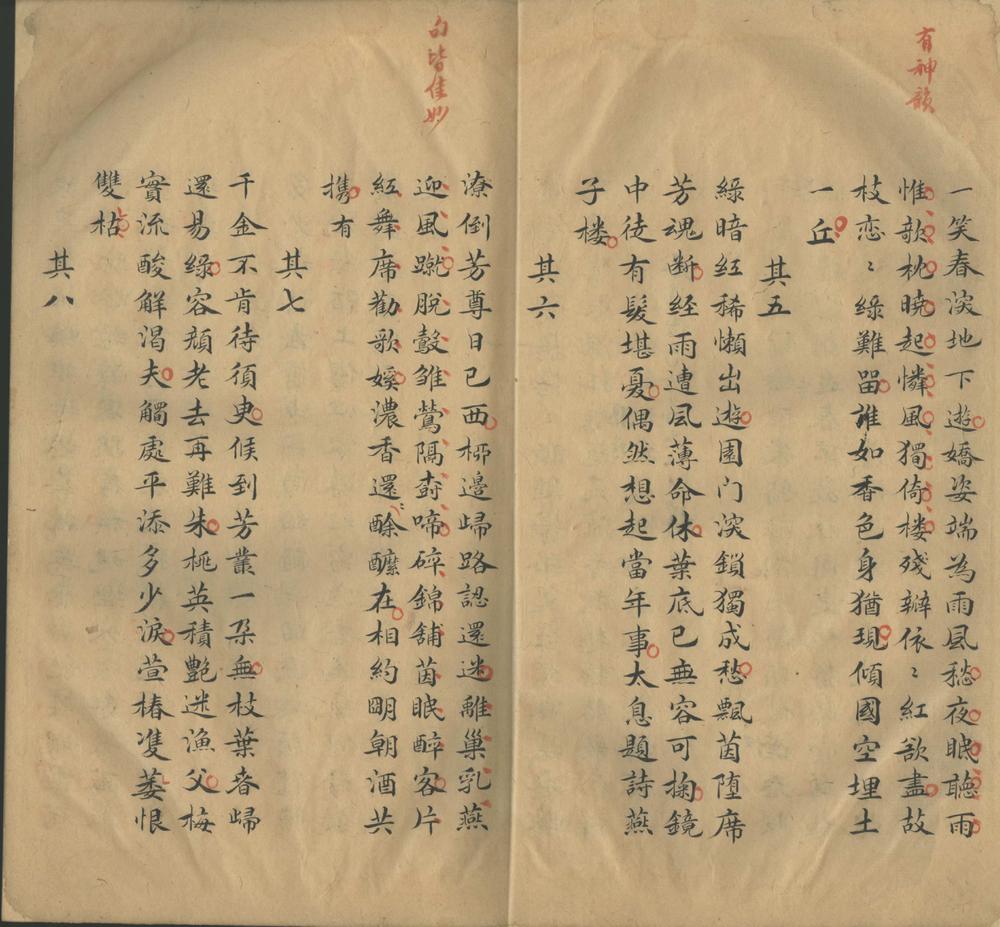 有神韻
一笑春深地下遊嬌姿端為雨風愁夜眠聽雨
惟歌枕曉起憐風獨倚楼殘辦依〻紅欲盡故
枝恋〻綠難留誰如香色身猶現傾國空埋土
一丘
其五
綠暗紅稀懶出遊園门深鎖獨成愁飄茵墮席
芳魂断経雨遭風薄命休葉底已無容可掬鏡
中徒有髮堪憂偶然想起當年事太息題詩燕
子楼
其六
句皆佳妙
潦倒芳尊日已西栁邊歸路認還迷離巢乳燕
迎風蹴脫鷇雏鶯隔樹啼碎錦舖茵眠醉客片
紅舞席勸歌媛濃香還酴醿在相約明朝酒共
携有
其七
千金不肯待須臾候到芳叢一朶無枝葉春歸
還易綠容顏老去再難朱桃英積艷迷漁父梅
實流酸解渴夫觸處平添多少淚萱椿㕠萎恨
雙枯
其八